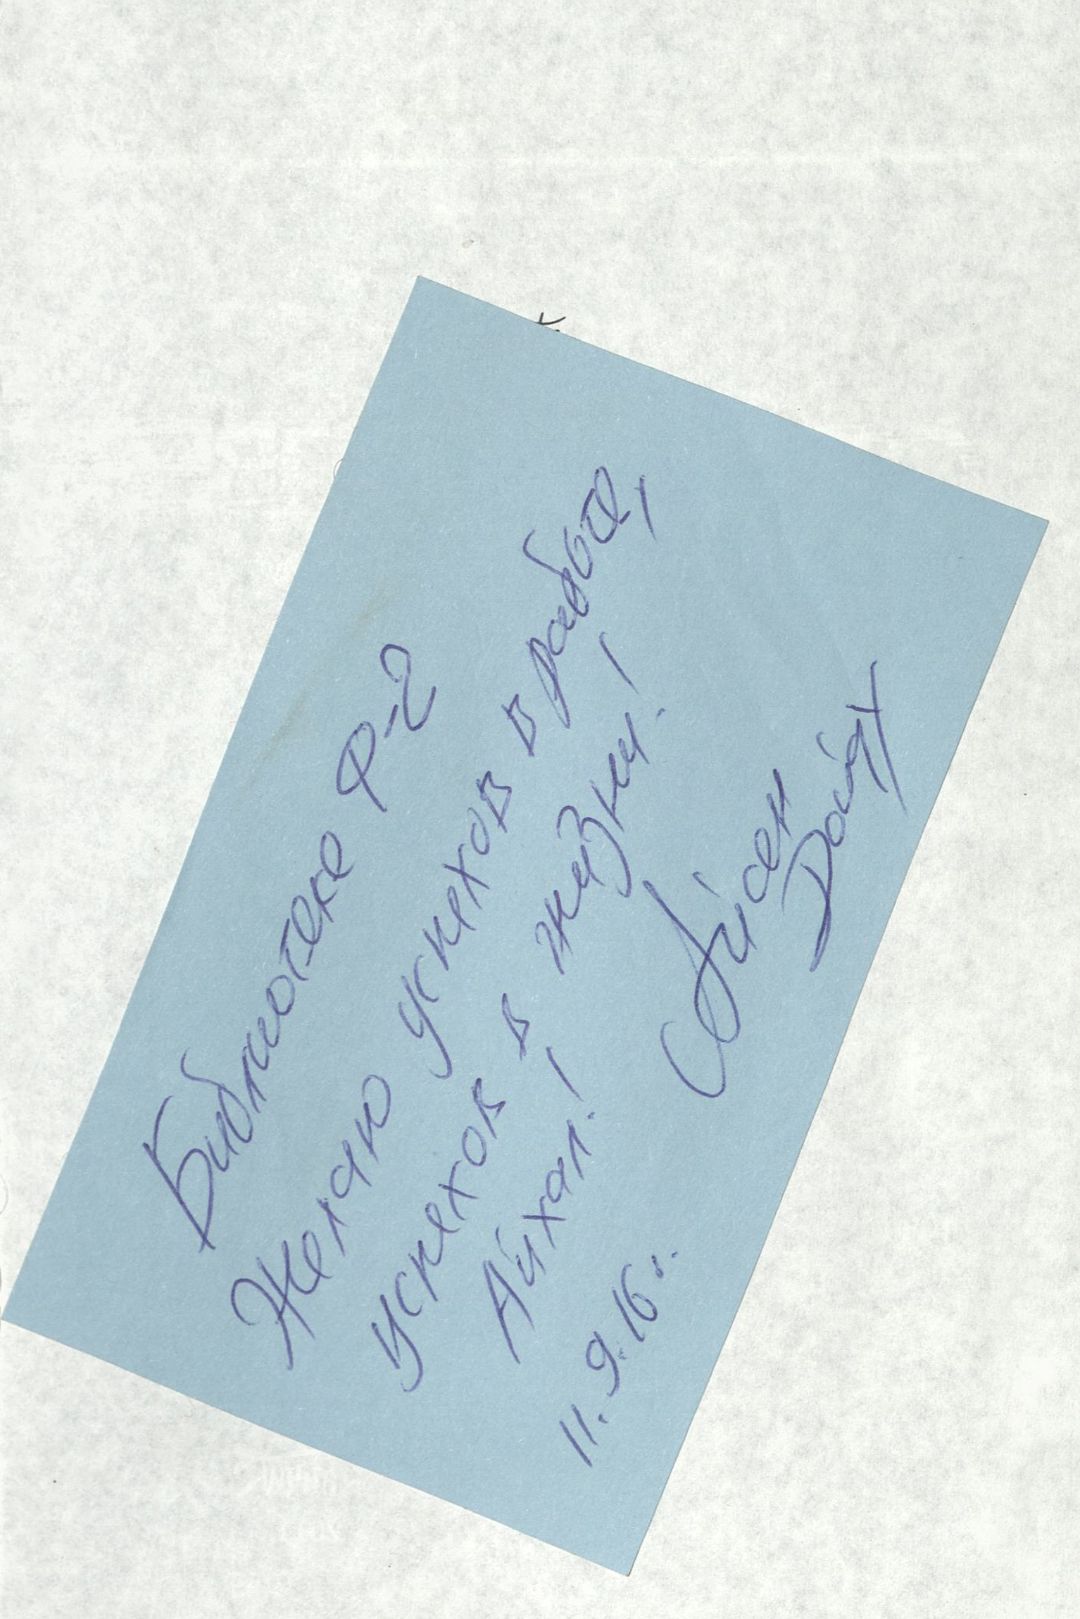 Библиотеке Ф-2
Желаю успехов в работе,
успехов в жизни!
Айхал!
Айсен
Дойду
11.9.16 г.